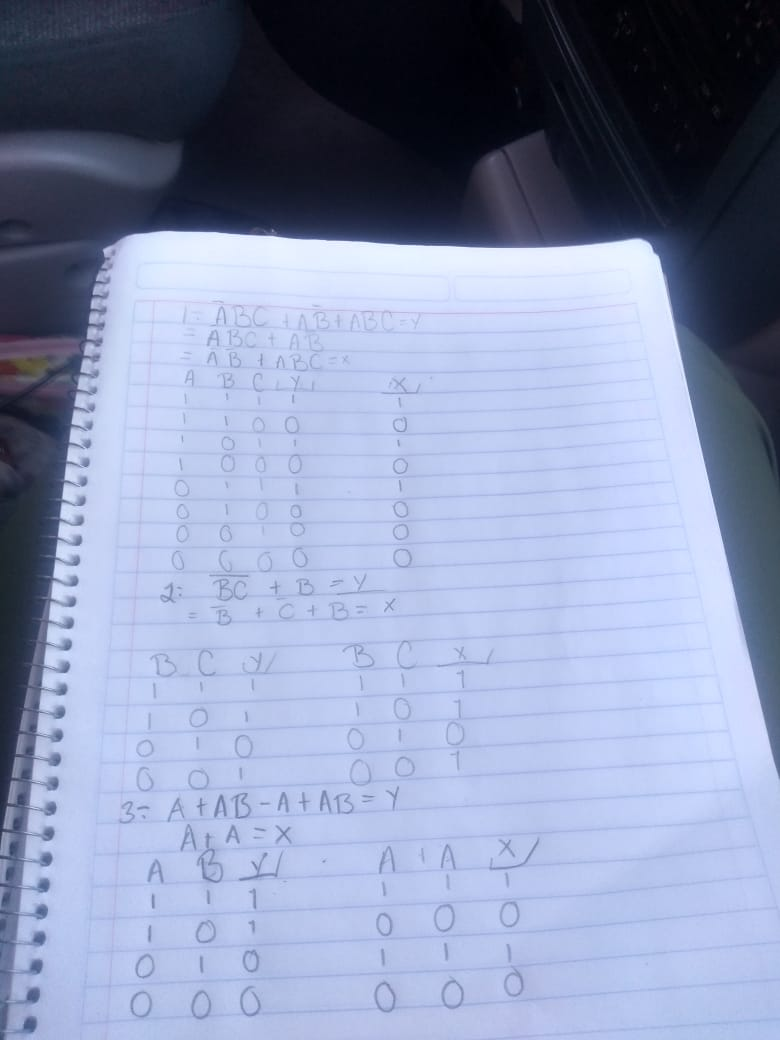 1= A̅BC + AB̅ + ABC = Y
= ABC + AB
= AB + ABC = X
A B C Y X
1 1 1 1 1
1 1 0 0 0
1 0 1 1 1
1 0 0 0 0
0 1 1 1 1
0 1 0 0 0
0 0 1 0 0
0 0 0 0 0
2: B̅C̅ + B = Y
= B̅ + C̅ + B = X
B C Y B C X
1 1 1 1 1 1
1 0 1 1 0 1
0 1 0 0 1 0
0 0 1 0 0 1
3= A + AB - A + AB = Y
A + A = X
A B Y A + A X
1 1 1 1 1 1
1 0 1 0 0 0
0 1 0 1 1 1
0 0 0 0 0 0